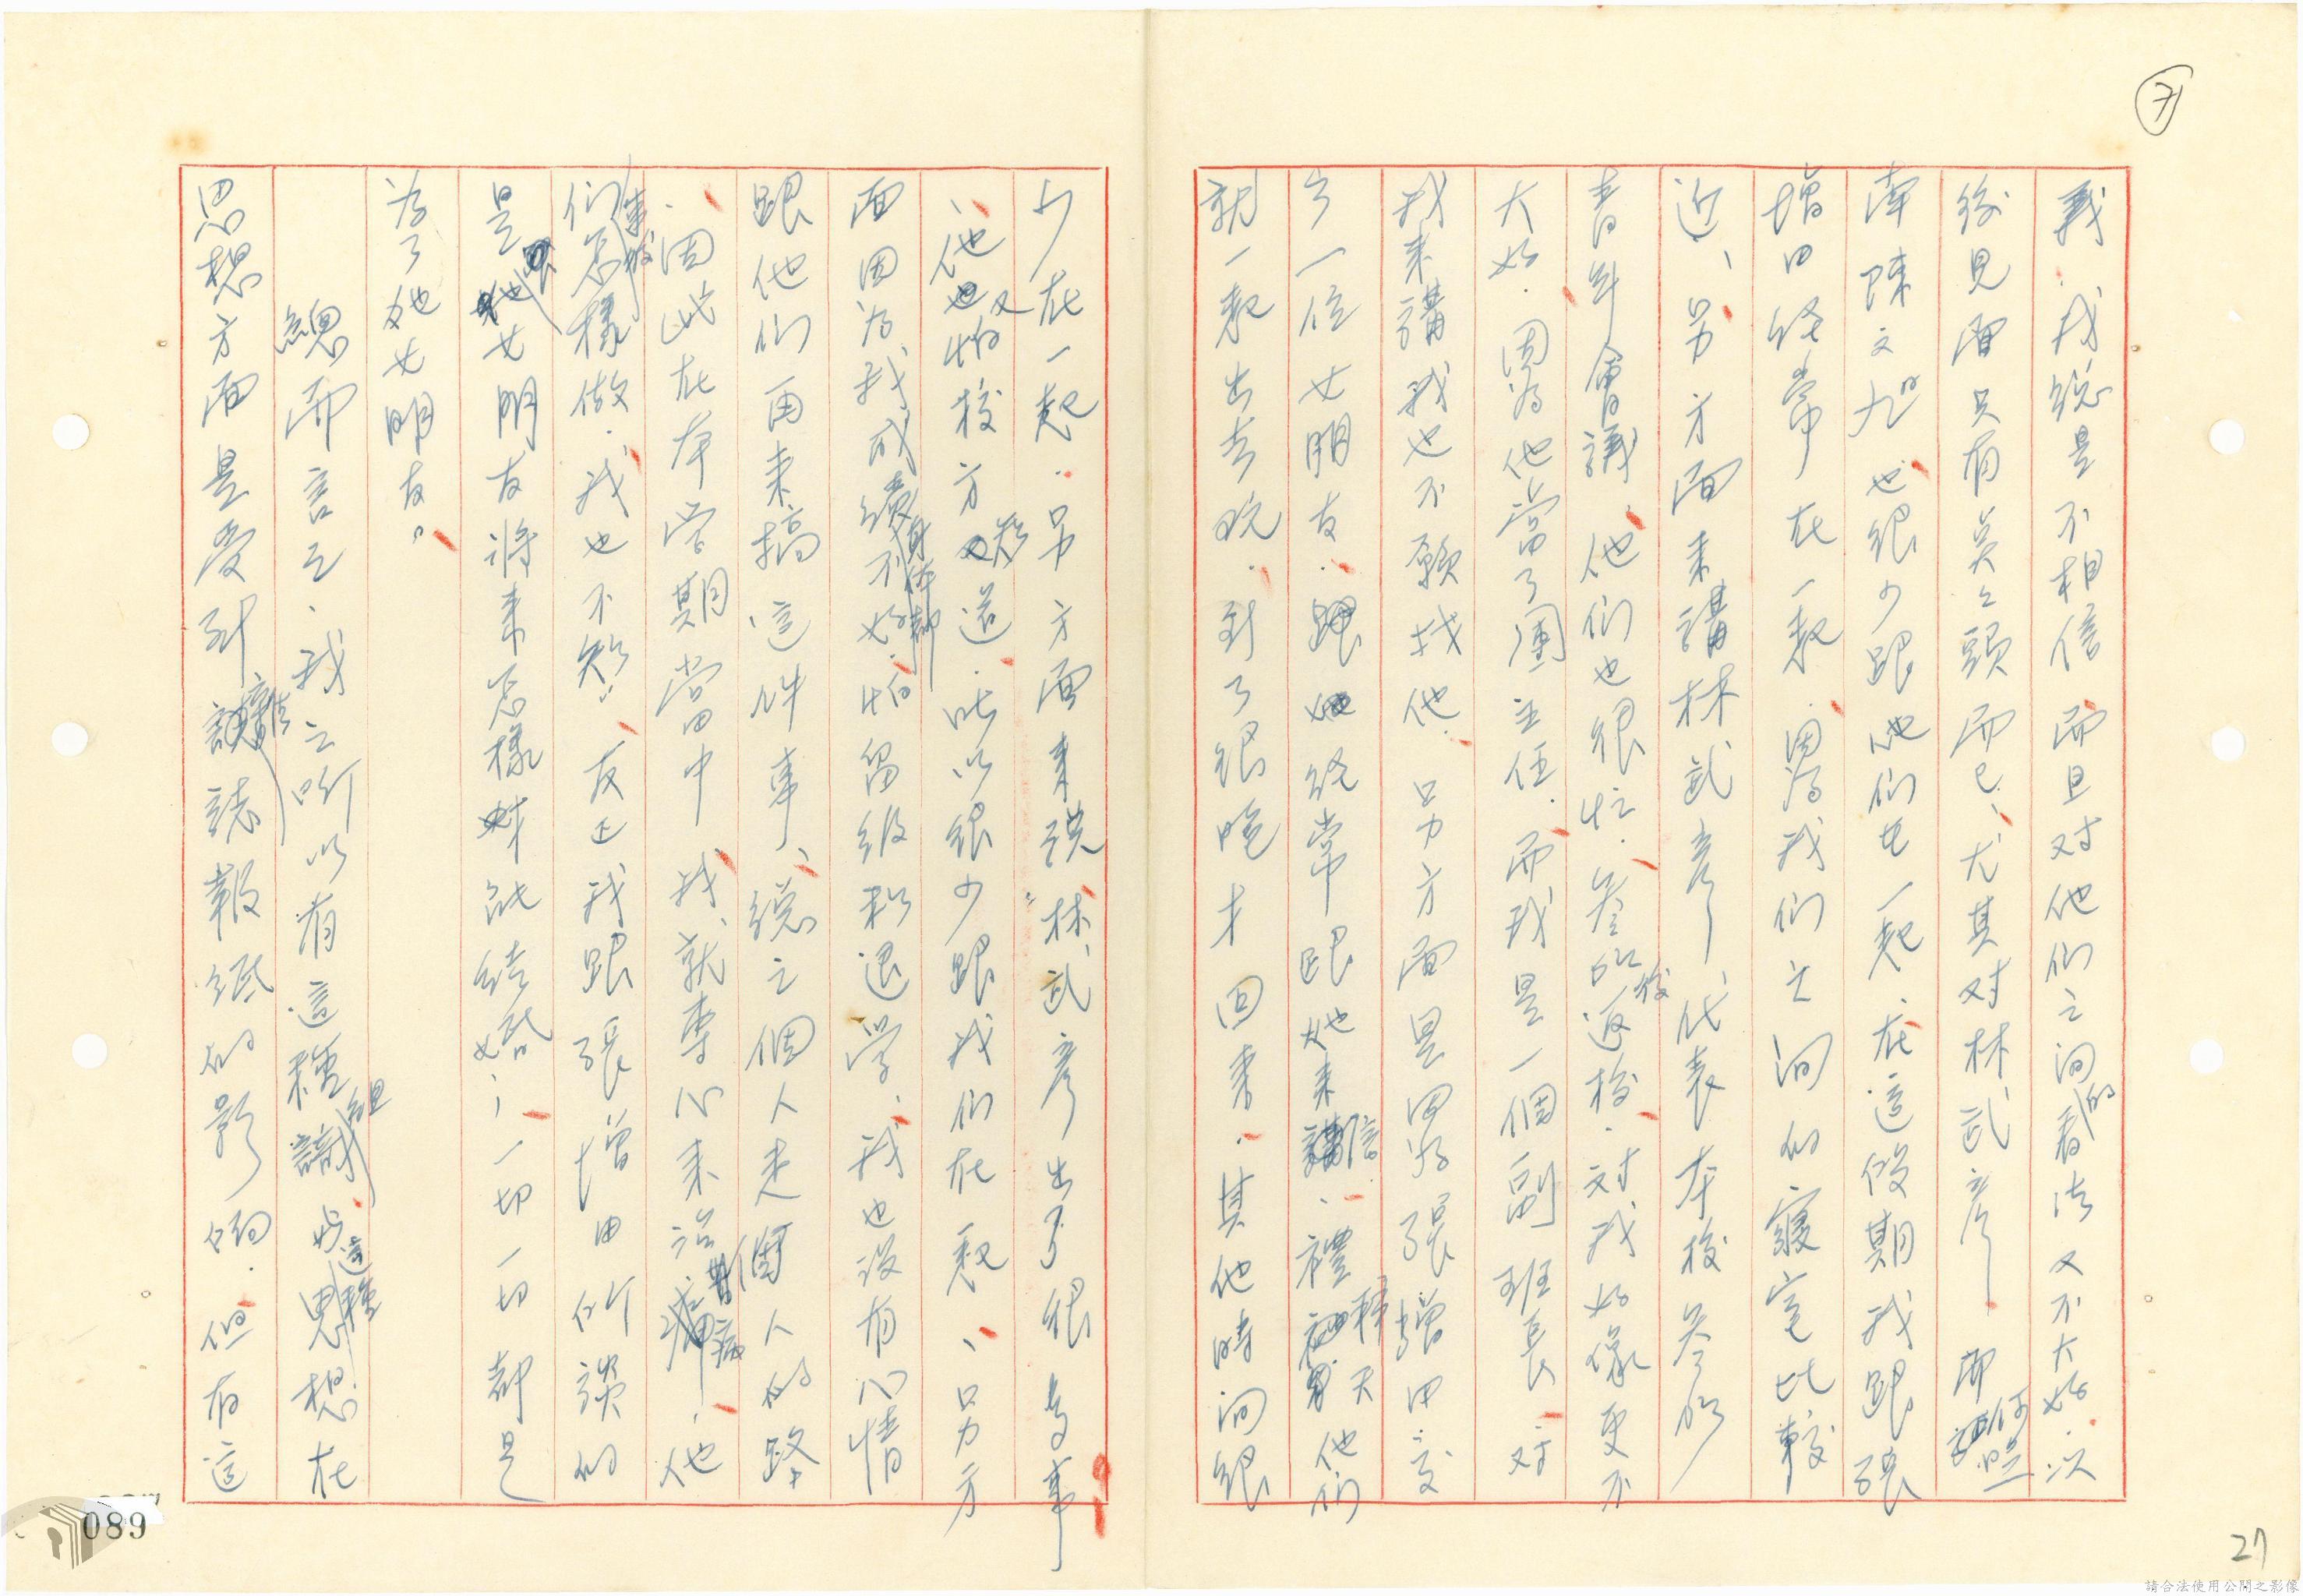 ⑦
義．我総是不相信而且对他们之间的看法又不大好．次
後見面只有点点頭而已、尤其对林、武彥
陳文也很少跟他们在一起．在這假期我跟張
增田经常在一起．因为我们之间的寢室比較
近、另方面来講林武彥、代表本校参加
青年會議．他们也很忙．参加後返校．对我好像更不
大好．因为他當了團主任．而我是一個副班長．对
我来講我也不願找他．另方面是因为張增田交
了一位女朋友．跟她经常跟她来信、禮拜天他们
就一起出去玩．到了很晚才回来．其他時间很
少在一起．另方面来談．林、武彥出了很多事
、他也怕又校方知道．所以很少跟我们在一起、另方
面因为我成績身体都不好．怕留级和退学．我也没有心情
跟他们再来搞這件事、総之個人走個人的路
．因此在本学期當中．我、就專心来治病．他
们事後怎樣做．我也不知．反正我跟張增田所談的
是跟女朋友將来怎樣才能結婚、一切一切都是
为了他女朋友。
總而言之、我之所以有這種組．這種思想．在
思想方面是受到雜誌報纸的影响．但有這
089
27
請合法使用公開之影像